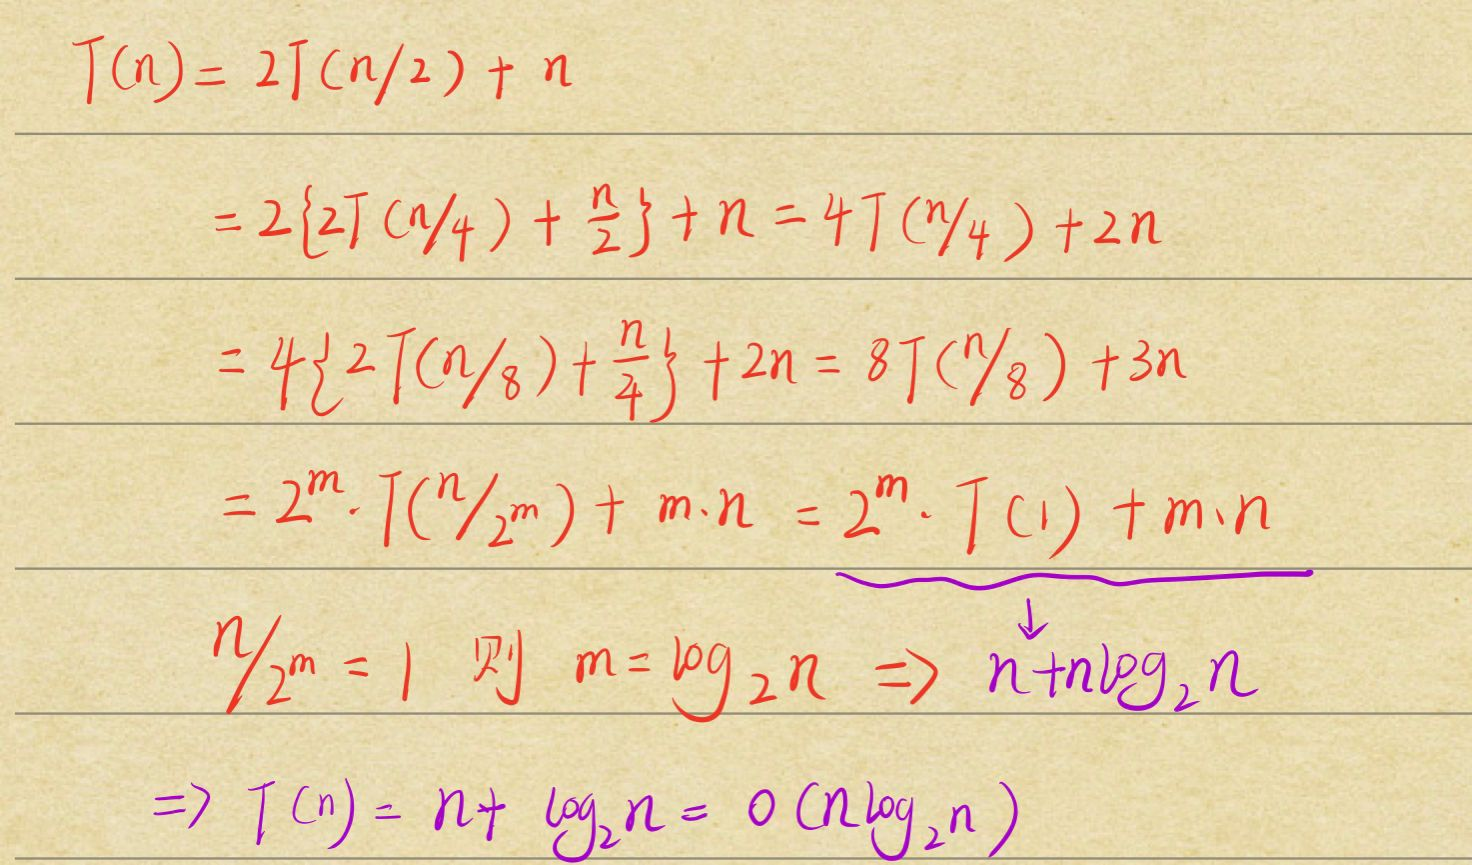 T(n) = 2T(n/2) + n
= 2{2T(n/4) + n/2} + n = 4T(n/4) + 2n
= 4{2T(n/8) + n/4} + 2n = 8T(n/8) + 3n
= 2^m · T(n/2^m) + m·n = 2^m · T(1) + m·n
↓
n/2^m = 1 则 m = log₂n => n+nlog₂n
=> T(n) = n+ log₂n = O(nlog₂n)